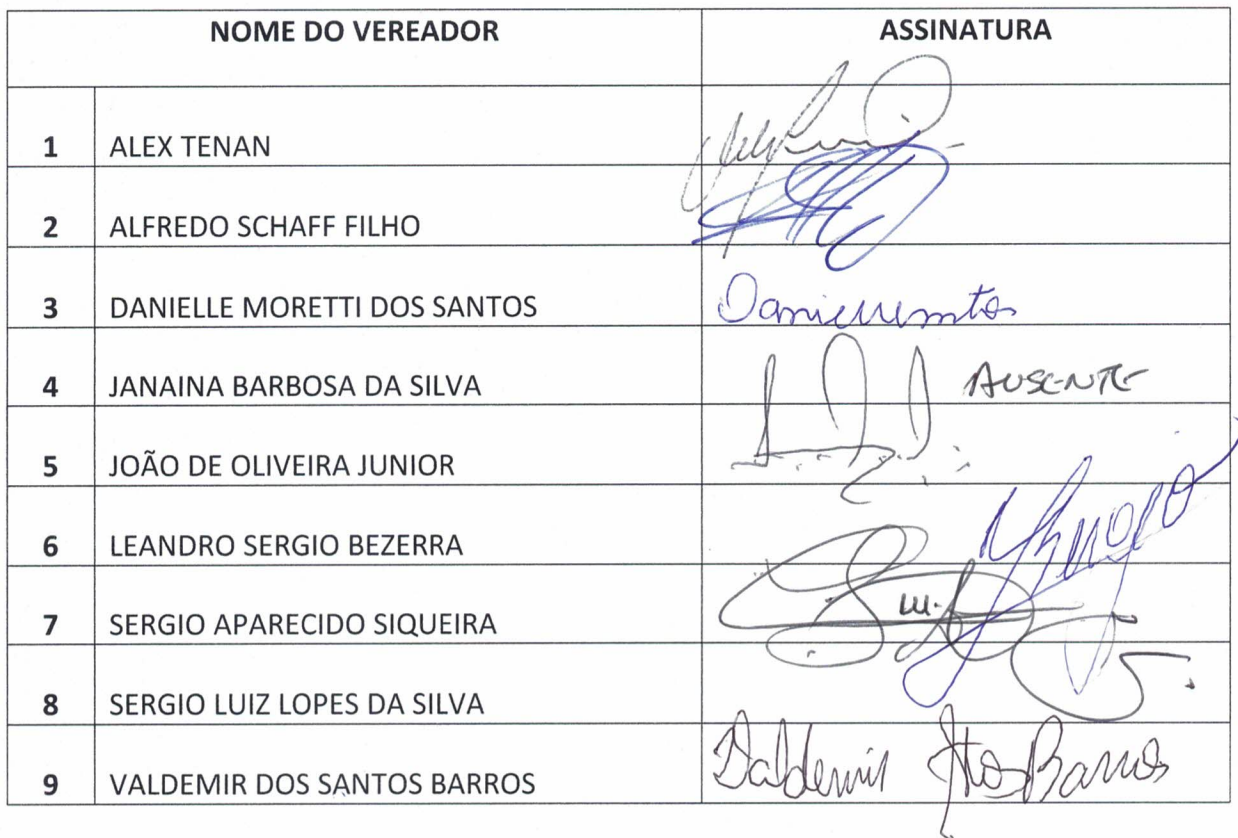 NOME DO VEREADOR ASSINATURA
1 ALEX TENAN
2 ALFREDO SCHAFF FILHO
3 DANIELLE MORETTI DOS SANTOS
4 JANAINA BARBOSA DA SILVA AUSENTE
5 JOÃO DE OLIVEIRA JUNIOR
6 LEANDRO SERGIO BEZERRA
7 SERGIO APARECIDO SIQUEIRA
8 SERGIO LUIZ LOPES DA SILVA
9 VALDEMIR DOS SANTOS BARROS Valdemir Stos Barros